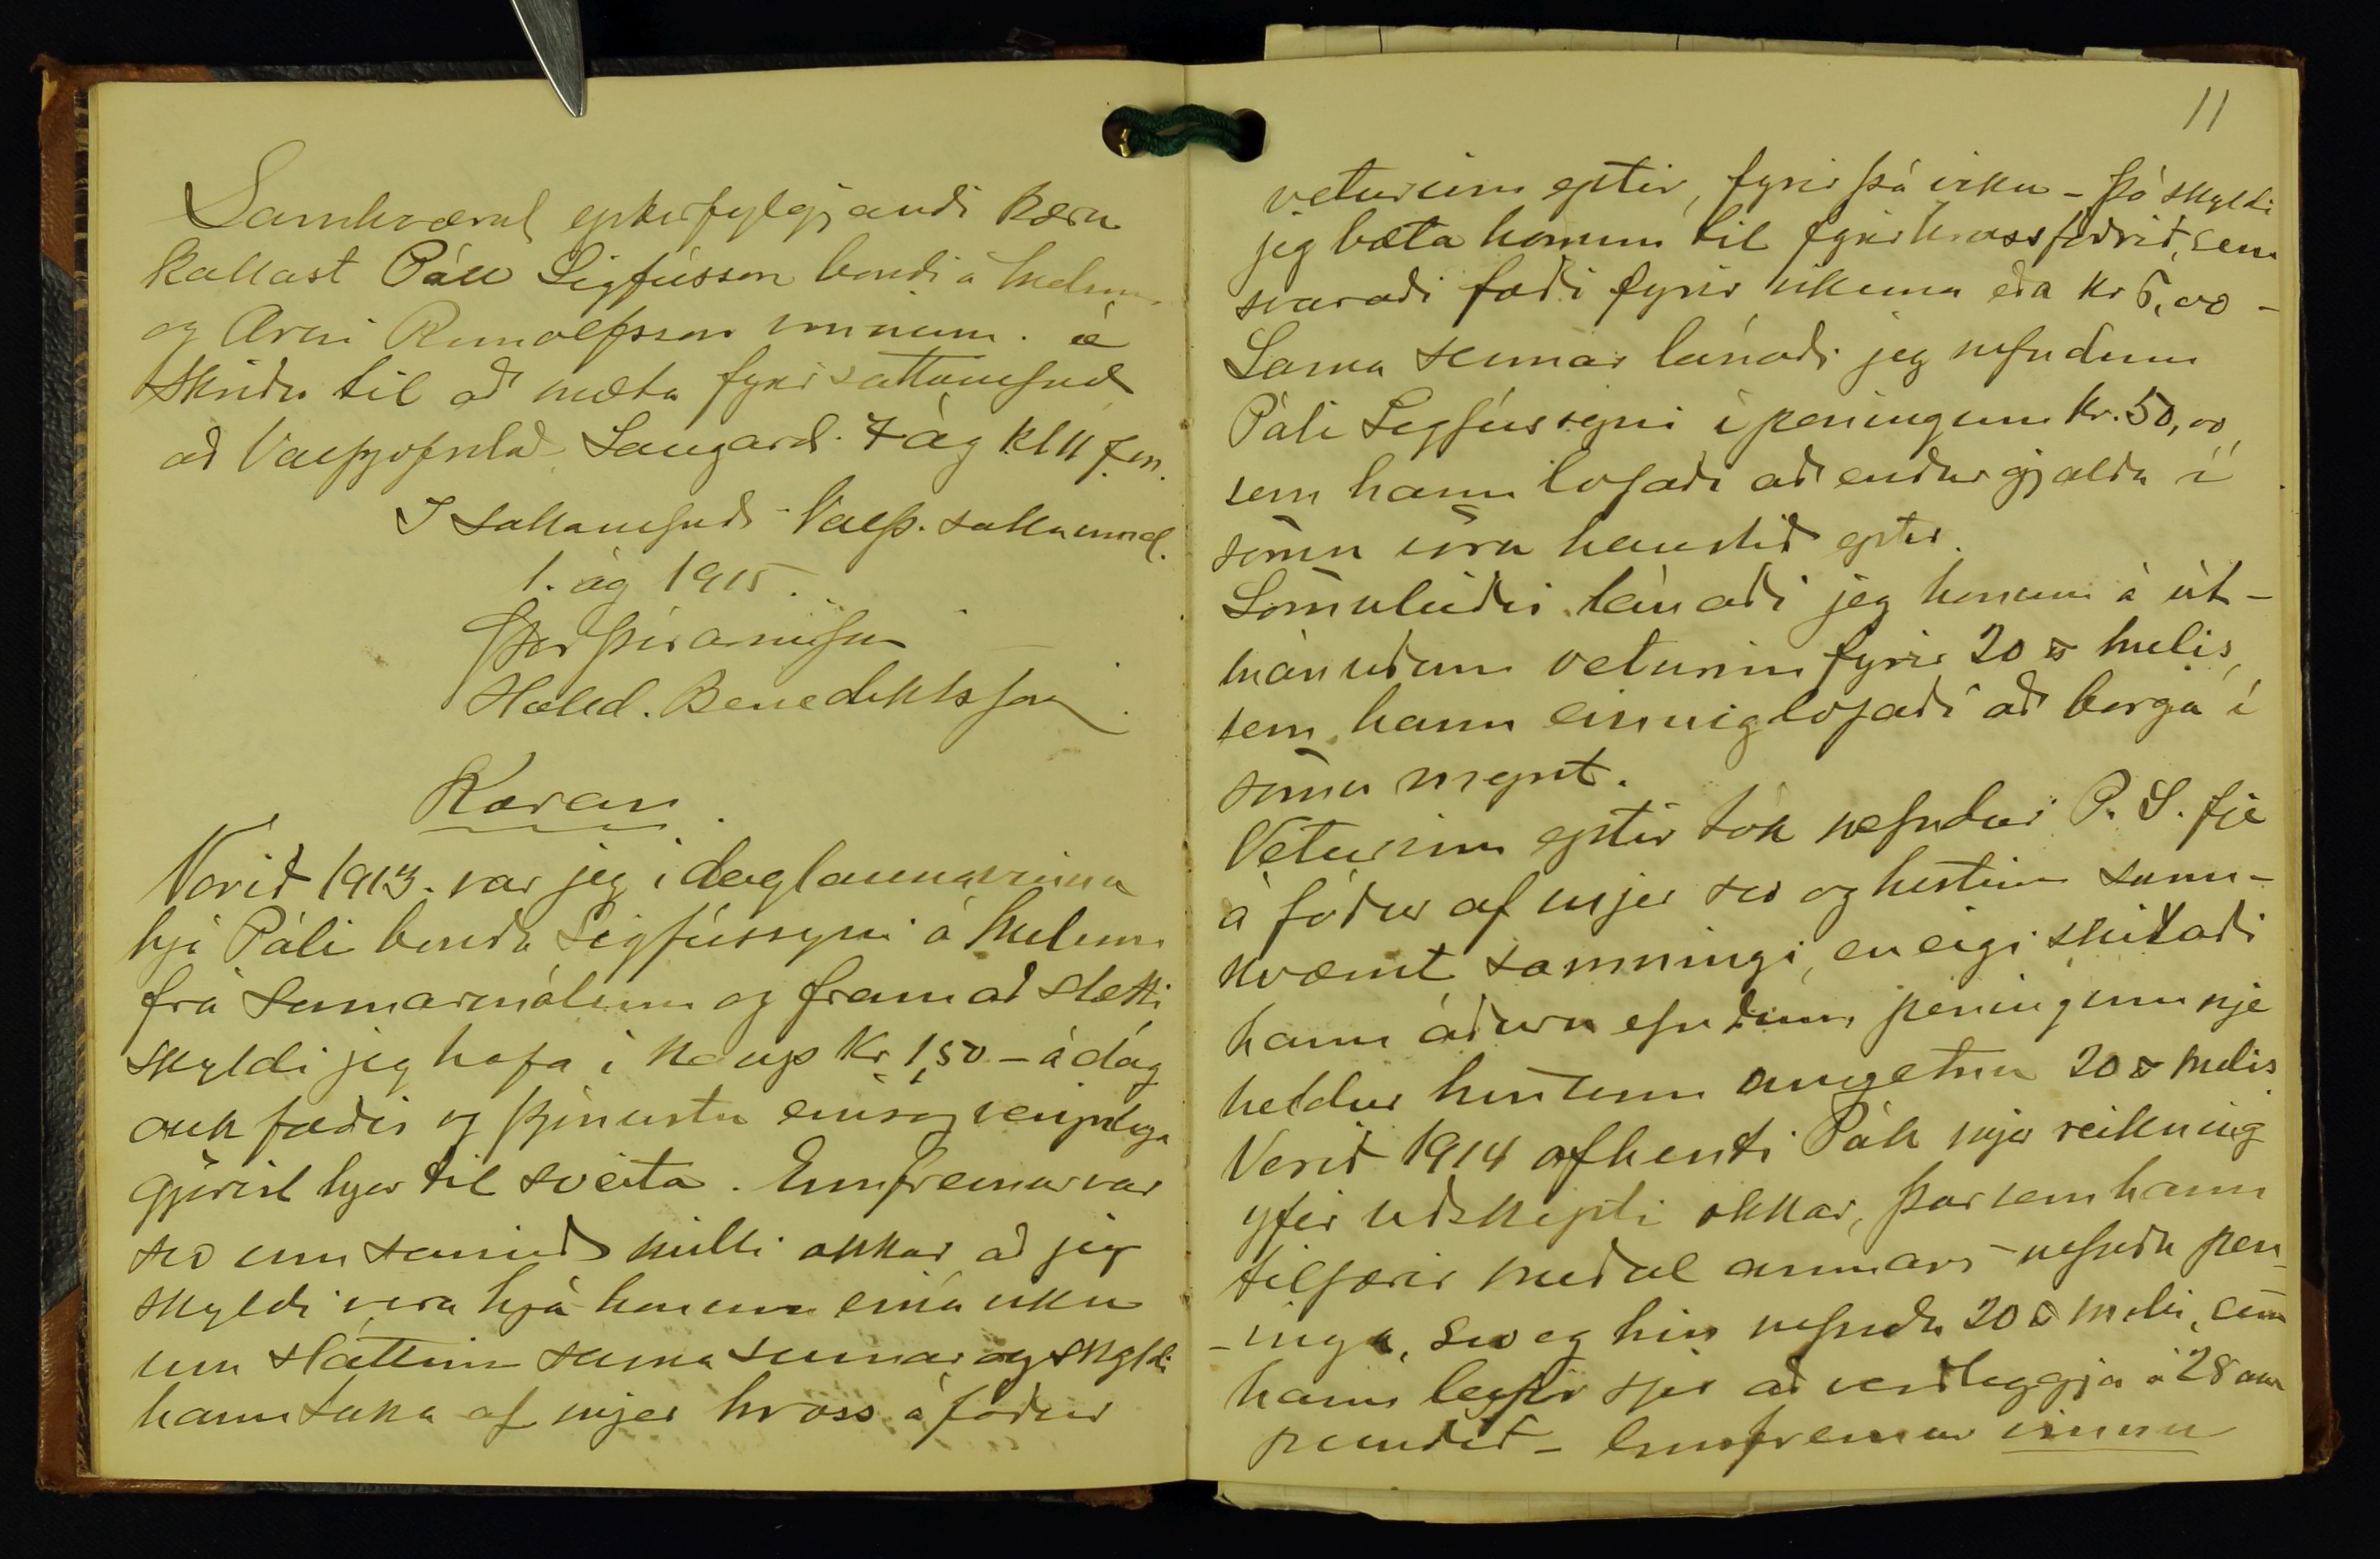 Samkvæmt epterfylgjandi kæru
kallast Páll Sigfússon bondi á Melum
og Arni Runolfsson vinnum. á
Skriðu til að mæta fyrir sáttanefnd
að Valþjofsstað Laugard. 7 ág kl 11 f.m.
I sáttanefnd Valþ. sáttaumd.
1. ág 1915.
Þor Þórarinsson
Halld. Benediktsson.
Kæran.
Vorið 1913. var jeg i daglaunavinnu
hjá Páli bonda Sigfússyni á Melum
frá Sumarmálum og fram að slætti
skyldi jeg hafa i kaup Kr 1,50 - á dag
auk fæðis og þjonustu einsog venjulega
gjörist hjer til sveita. Ennfremur var
svo um samið milli okkar að jeg
skyldi vera hjá honum eina viku
um sláttinn sama sumar og skyldi
hann taka af mjer hross á fóður
11
veturinn eptir, fyrir þá viku - þó skyldi
jeg bæta honum til fyrir hrossfóðrið, sem
svaraði fæði fyrir vikuna eða kr 5,00 -
Sama sumar lánaði jeg nefndum
Páli Sigfússyni i peningum Kr. 50,00,
sem hann lofaði að endurgjalda í
sömu vöru haustið eptir.
Sömuleiðis lánaði jeg honum á út-
mánuðum veturinn fyrir 20 ℔ melis,
sem hann einnig lofaði að borga í
sömu mynt.
Veturinn eptir tók nefndur P. S. fje
á fóður af mjer svo og hestinn sam-
kvæmt samningi, en eigi skilaði
hann áðurnefndum peningum nje
heldur hinum angetnu 20 ℔ melis
Vorið 1914 afhenti Páll mjer reikning
yfir viðskipti okkar, þar sem hann
tilfærir meðal annars nefnda pen-
-inga, svo og hin nefndu 20 ℔ melis, sem
hann leyfir sjer að verðleggja á 28 aur
pundið - Ennfremur vinnu